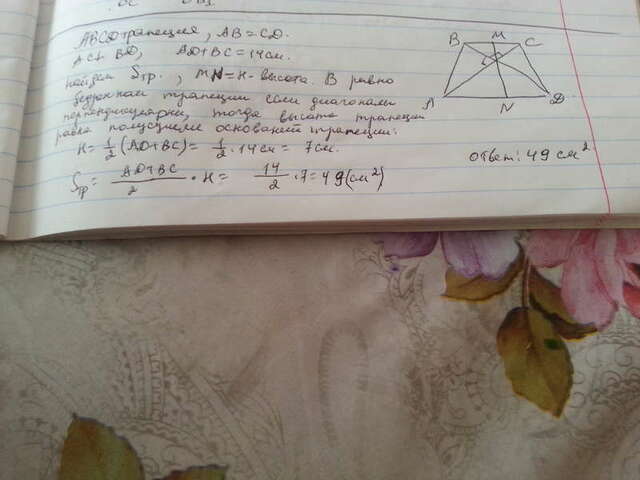 ABCD трапеция, AB = CD.
AC⊥ BD, AD+BC = 14 см.
найдём Sтр., MN = H - высота. В равно
бедренной трапеции если диагонали
перпендикулярны, тогда высота трапеции
равна полусумме оснований трапеции:
H = 1/2 (AD+BC) = 1/2 · 14 см = 7 см.
Sтр = AD+BC/2 · H = 14/2 · 7 = 49 (см²)
ответ: 49 см²
B M C
A N D